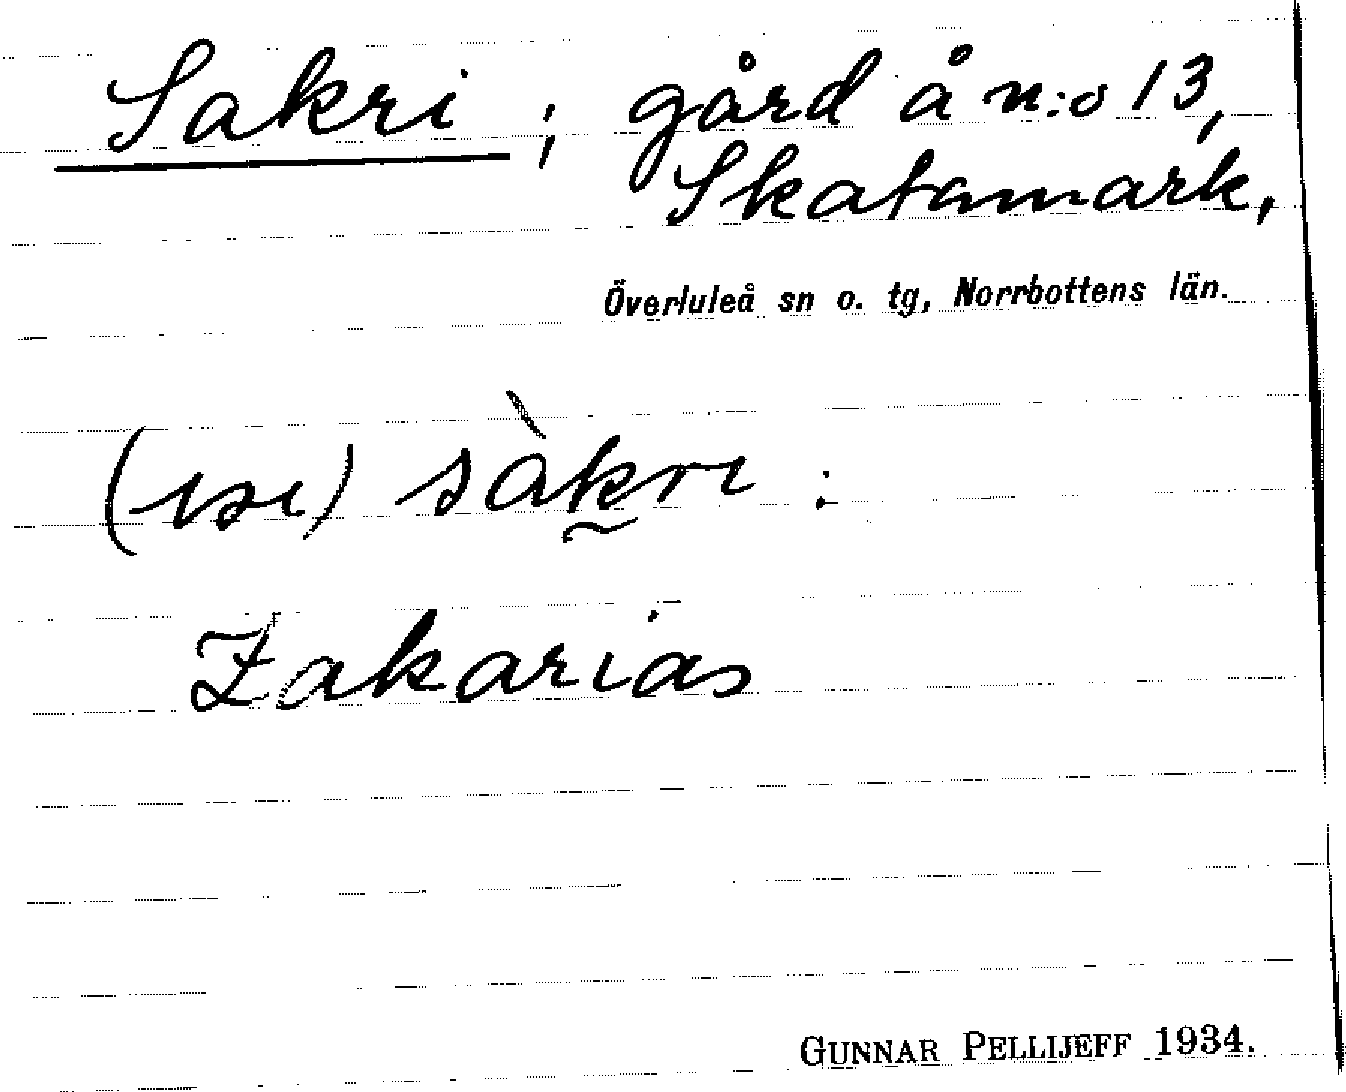 Sakri ; gård å n:o 13,
Skatamark,
Överluleå sn o. tg, Norrbottens län.
(ısı) sàk̰rı :
Zakarias
GUNNAR PELLIJEFF 1934.